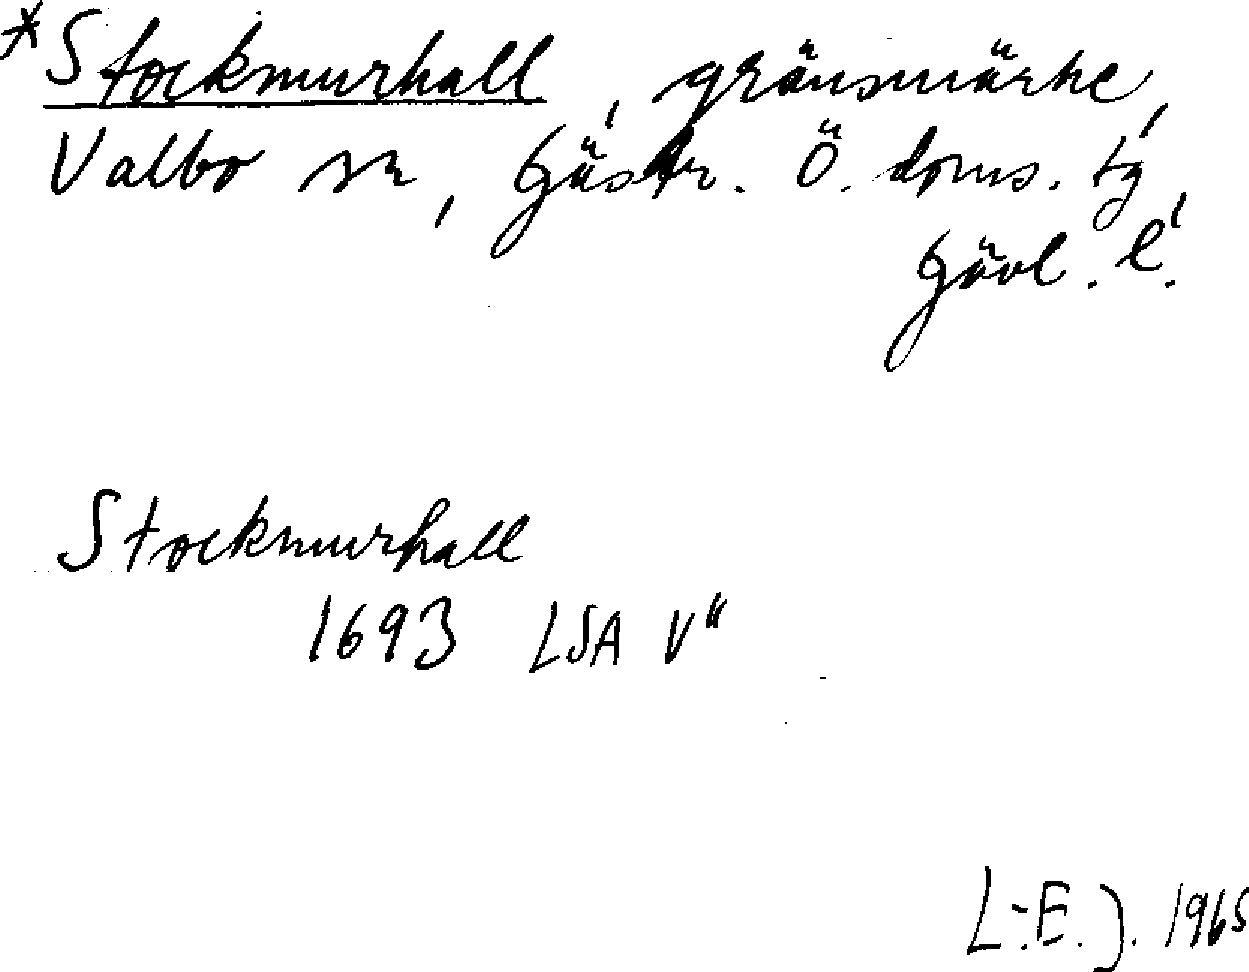 *Stockmurhall, gränsmärke,
Valbo sn, Gästr. Ö. doms. tg,
Gävl. l.
Stockmurhall
1693 LSA V"
L-E. J. 1965